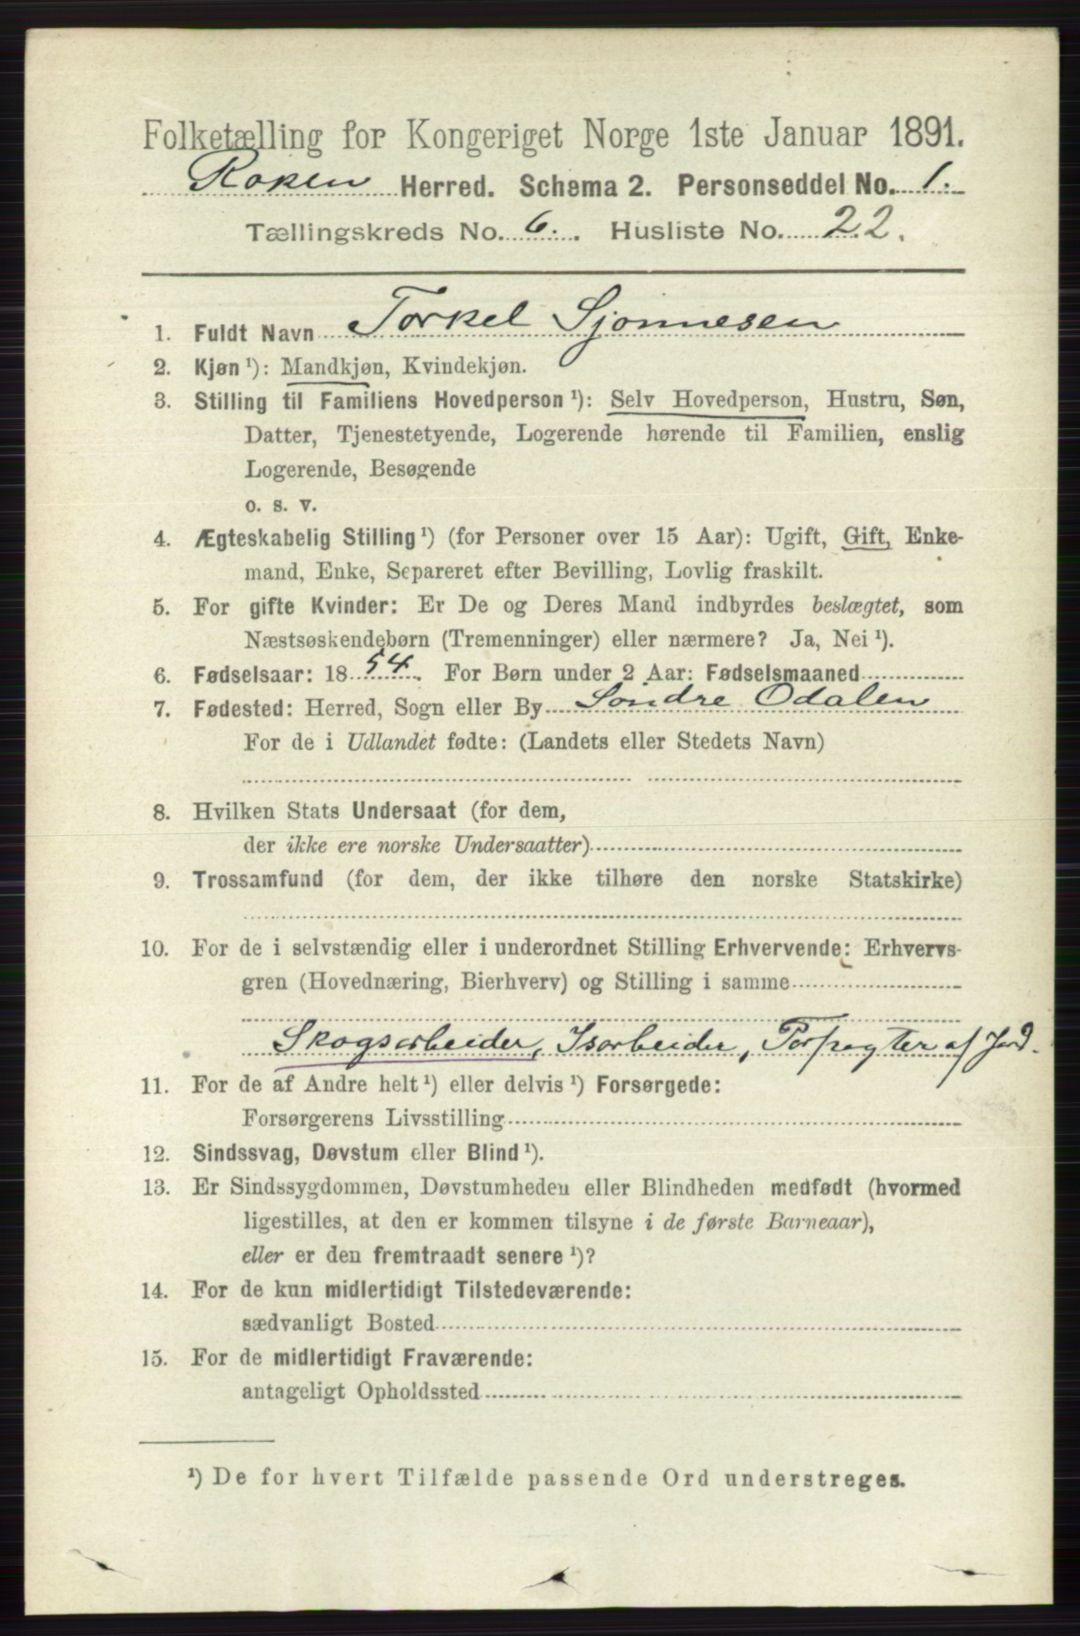 Folketælling for Kongeriget Norge 1ste Januar 1891.
Røken Herred. Schema 2. Personseddel No. 1.
Tællingskreds No. 6. Husliste No. 22.
1. Fuldt Navn Torkel Sjønnesen
2. Kjøn ¹): Mandkjøn, Kvindekjøn.
3. Stilling til Familiens Hovedperson ¹): Selv Hovedperson, Hustru, Søn,
Datter, Tjenestetyende, Logerende hørende til Familien, enslig
Logerende, Besøgende
o. s. v.
4. Ægteskabelig Stilling ¹) (for Personer over 15 Aar): Ugift, Gift, Enke-
mand, Enke, Separeret efter Bevilling, Lovlig fraskilt.
5. For gifte Kvinder: Er De og Deres Mand indbyrdes beslægtet, som
Næstsøskendebørn (Tremenninger) eller nærmere? Ja, Nei ¹).
6. Fødselsaar: 1854. For Børn under 2 Aar: Fødselsmaaned
7. Fødested: Herred, Sogn eller By Søndre Odalen
For de i Udlandet fødte: (Landets eller Stedets Navn)
8. Hvilken Stats Undersaat (for dem,
der ikke ere norske Undersaatter)
9. Trossamfund (for dem, der ikke tilhøre den norske Statskirke)
10. For de i selvstændig eller i underordnet Stilling Erhvervende: Erhvervs-
gren (Hovednæring, Bierhverv) og Stilling i samme
Skogsarbeider, Isarbeider, Forpagter af Jord.
11. For de af Andre helt ¹) eller delvis ¹) Forsørgede:
Forsørgerens Livsstilling
12. Sindssvag, Døvstum eller Blind ¹).
13. Er Sindssygdommen, Døvstumheden eller Blindheden medfødt (hvormed
ligestilles, at den er kommen tilsyne i de første Barneaar),
eller er den fremtraadt senere ¹)?
14. For de kun midlertidigt Tilstedeværende:
sædvanligt Bosted
15. For de midlertidigt Fraværende:
antageligt Opholdssted
¹) De for hvert Tilfælde passende Ord understreges.